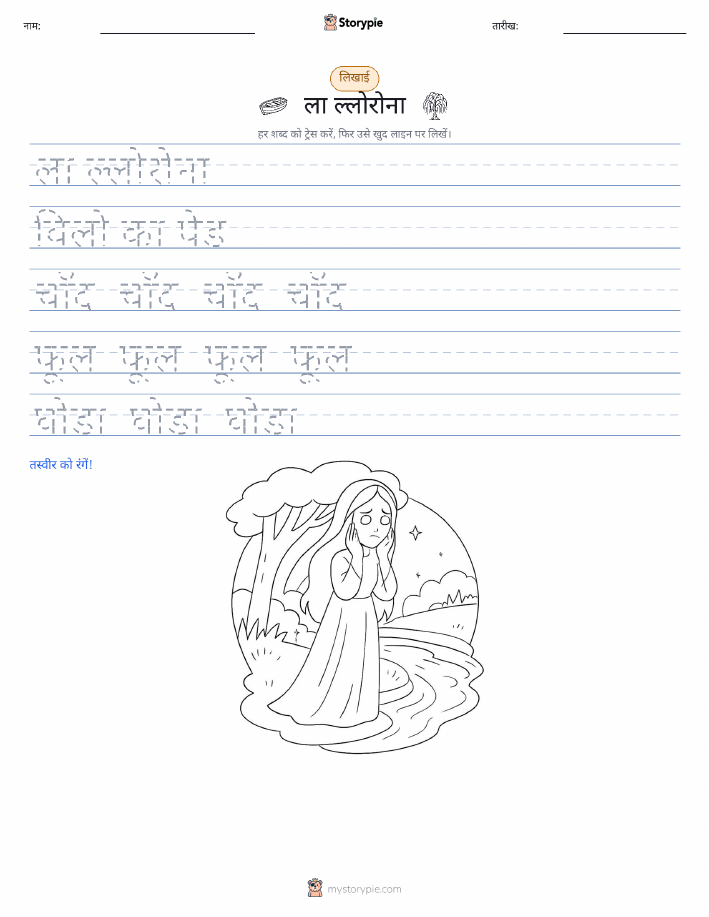 नाम:
Storypie
तारीख:
लिखाई
ला ल्लोरोना
हर शब्द को ट्रेस करें, फिर उसे खुद लाइन पर लिखें।
ला ल्लोरोना
विलो का पेड़
चाँद चाँद चाँद चाँद
फूल फूल फूल फूल
घोड़ा घोड़ा घोड़ा
तस्वीर को रंगें!
mystorypie.com